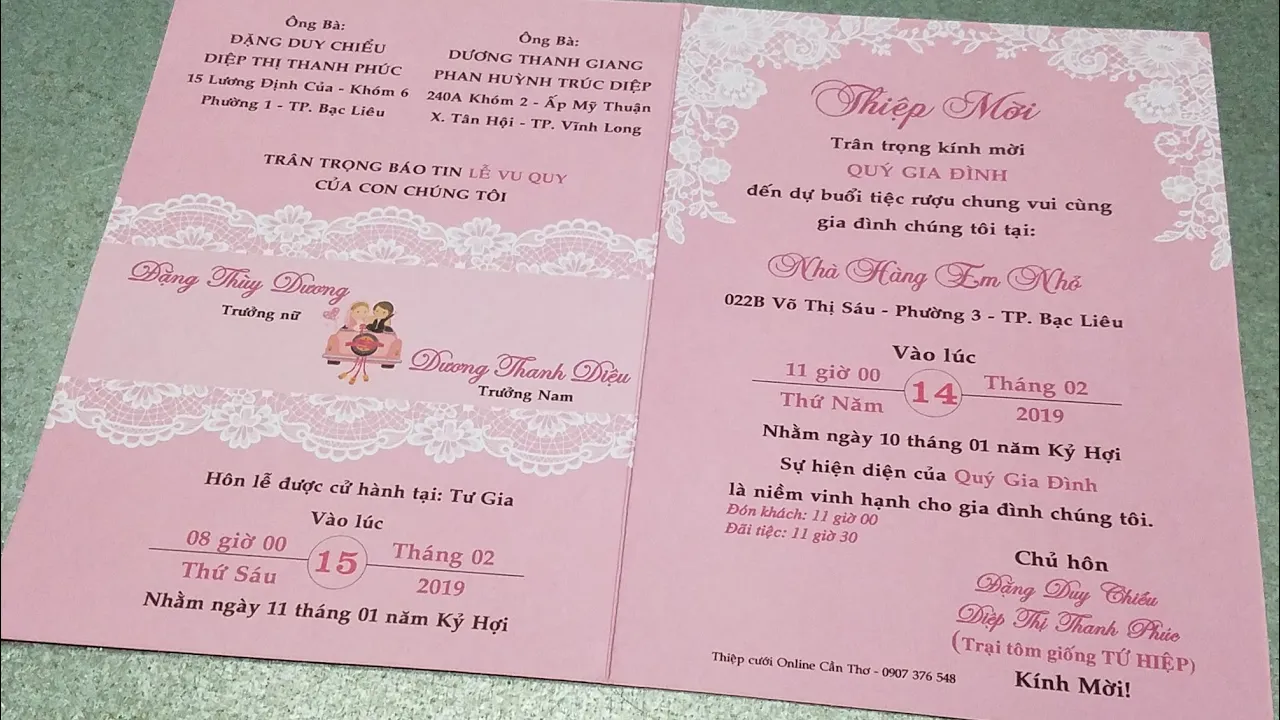 Ông Bà:
ĐẶNG DUY CHIỂU
DIỆP THỊ THANH PHÚC
15 Lương Định Của - Khóm 6
Phường 1 - TP. Bạc Liêu
Ông Bà:
DƯƠNG THANH GIANG
PHAN HUỲNH TRÚC DIỆP
240A Khóm 2 - Ấp Mỹ Thuận
X. Tân Hội - TP. Vĩnh Long
TRÂN TRỌNG BÁO TIN LỄ VU QUY
CỦA CON CHÚNG TÔI
Đặng Thùy Dương
Trưởng nữ
Dương Thanh Diệu
Trưởng Nam
Hôn lễ được cử hành tại: Tư Gia
Vào lúc
08 giờ 00
Thứ Sáu
15
Tháng 02
2019
Nhằm ngày 11 tháng 01 năm Kỷ Hợi
Thiệp Mời
Trân trọng kính mời
QUÝ GIA ĐÌNH
đến dự buổi tiệc rượu chung vui cùng
gia đình chúng tôi tại:
Nhà Hàng Em Nhỏ
022B Võ Thị Sáu - Phường 3 - TP. Bạc Liêu
Vào lúc
11 giờ 00
Thứ Năm
14
Tháng 02
2019
Nhằm ngày 10 tháng 01 năm Kỷ Hợi
Sự hiện diện của Quý Gia Đình
là niềm vinh hạnh cho gia đình chúng tôi.
Đón khách: 11 giờ 00
Đãi tiệc: 11 giờ 30
Chủ hôn
Đặng Duy Chiểu
Diệp Thị Thanh Phúc
(Trại tôm giống TỨ HIỆP)
Kính Mời!
Thiệp cưới Online Cần Thơ - 0907 376 548